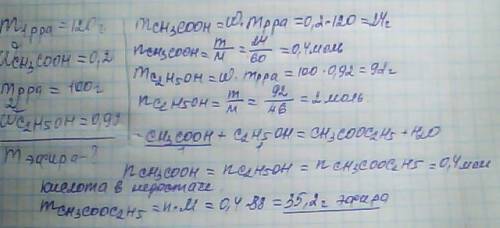 m₁рра = 120г
ω CH₃COOH = 0,2
m₂рра = 100г
ω C₂H₅OH = 0,92
m эфира - ?
m CH₃COOH = ω · mрра = 0,2 · 120 = 24г
n CH₃COOH = m/M = 24/60 = 0,4 моль
m C₂H₅OH = ω · mрра = 100 · 0,92 = 92г
n C₂H₅OH = m/M = 92/46 = 2 моль
CH₃COOH + C₂H₅OH = CH₃COOC₂H₅ + H₂O
n CH₃COOH = n C₂H₅OH = n CH₃COOC₂H₅ = 0,4 моль
кислота в недостатке
m CH₃COOC₂H₅ = n · M = 0,4 · 88 = 35,2г эфира